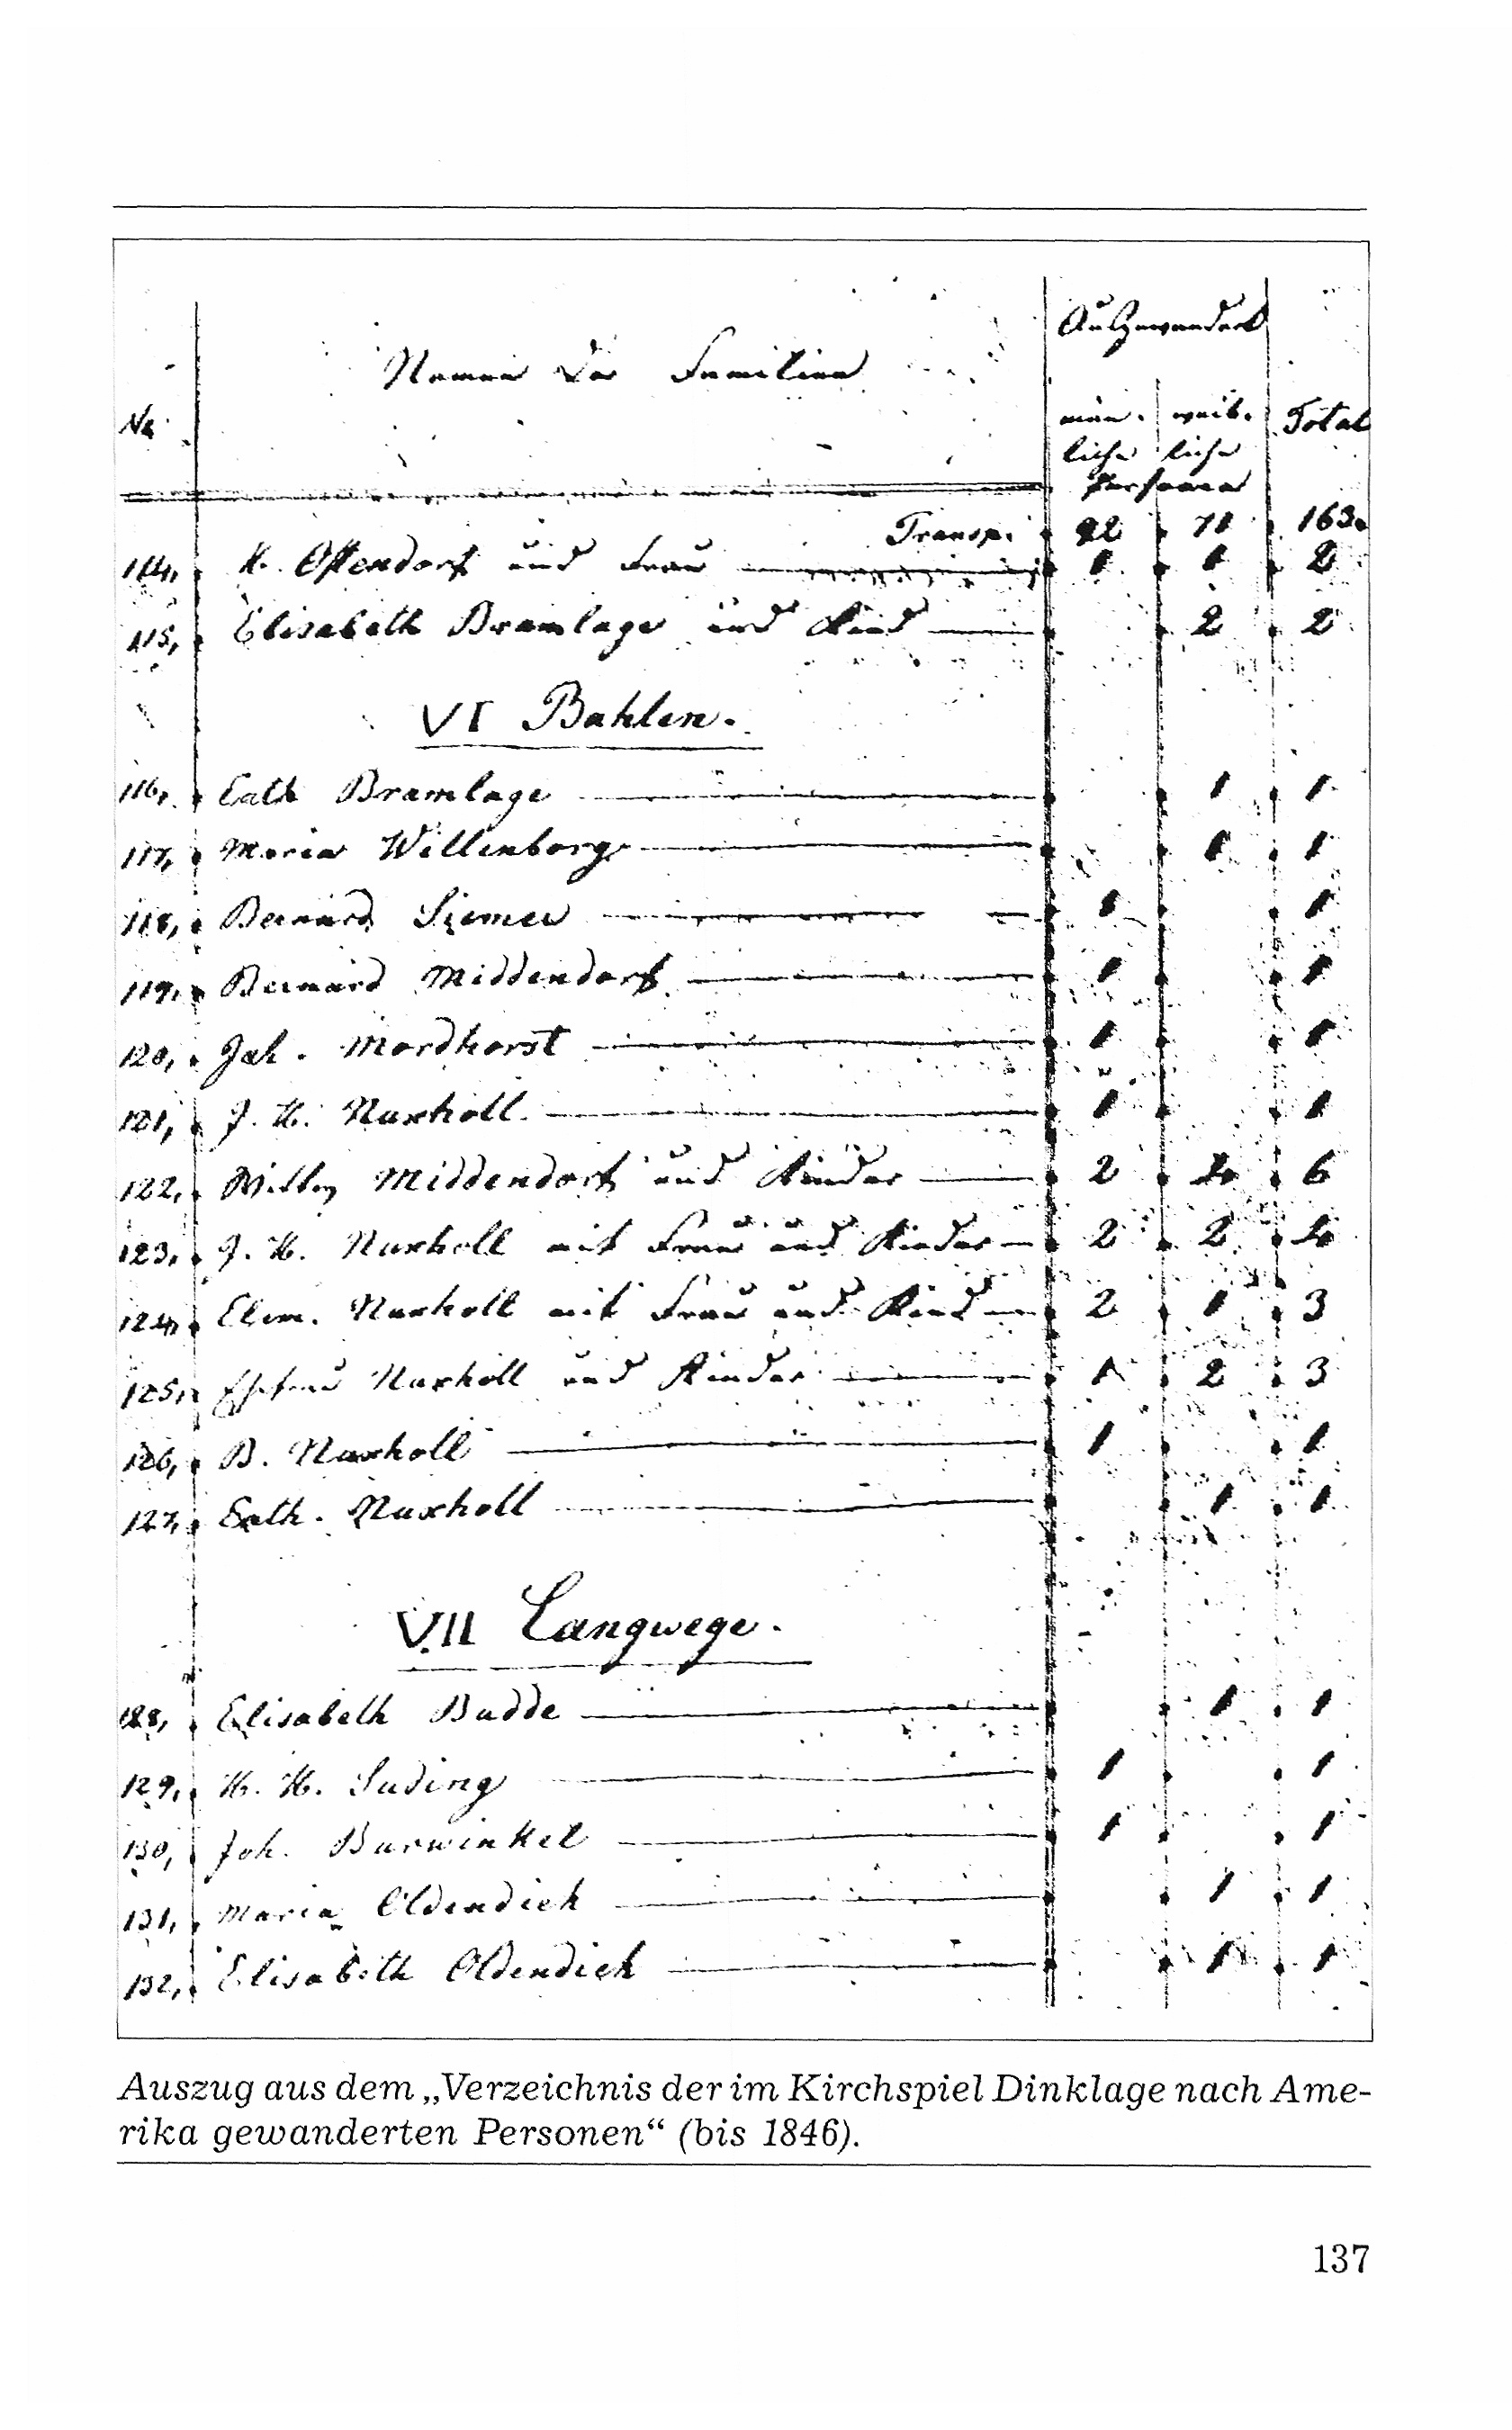 Ausgewandert
Namen der Familien
No
män- weib- Total
liche liche
Personen
Transp. 92 71 163.
114, H. Ostendorf und Frau 1 1 2
115, Elisabeth Bramlage und Kind 2 2
VI Bahlen.
116, Cath Bramlage 1 1
117, Maria Willenborg 1 1
118, Bernard Siemer 1 1
119, Bernard Middendorf 1 1
120, Joh. Mordhorst 1 1
121, J. H. Nuxholl 1 1
122, Middendorf und Kinder 2 4 6
123, J. H. Nuxholl mit Frau und Kinder 2 2 4
124, Clem. Nuxholl mit Frau und Kind 2 1 3
125, Ehefrau Nuxholl und Kinder 1 2 3
126, B. Nuxholl 1 1
127, Cath. Nuxholl 1 1
VII Langwege.
128, Elisabeth Budde 1 1
129, H. H. Suding 1 1
130, Joh. Burwinkel 1 1
131, Maria Oldendiek 1 1
132, Elisabeth Oldendiek 1 1
Auszug aus dem „Verzeichnis der im Kirchspiel Dinklage nach Ame-
rika gewanderten Personen“ (bis 1846).
137